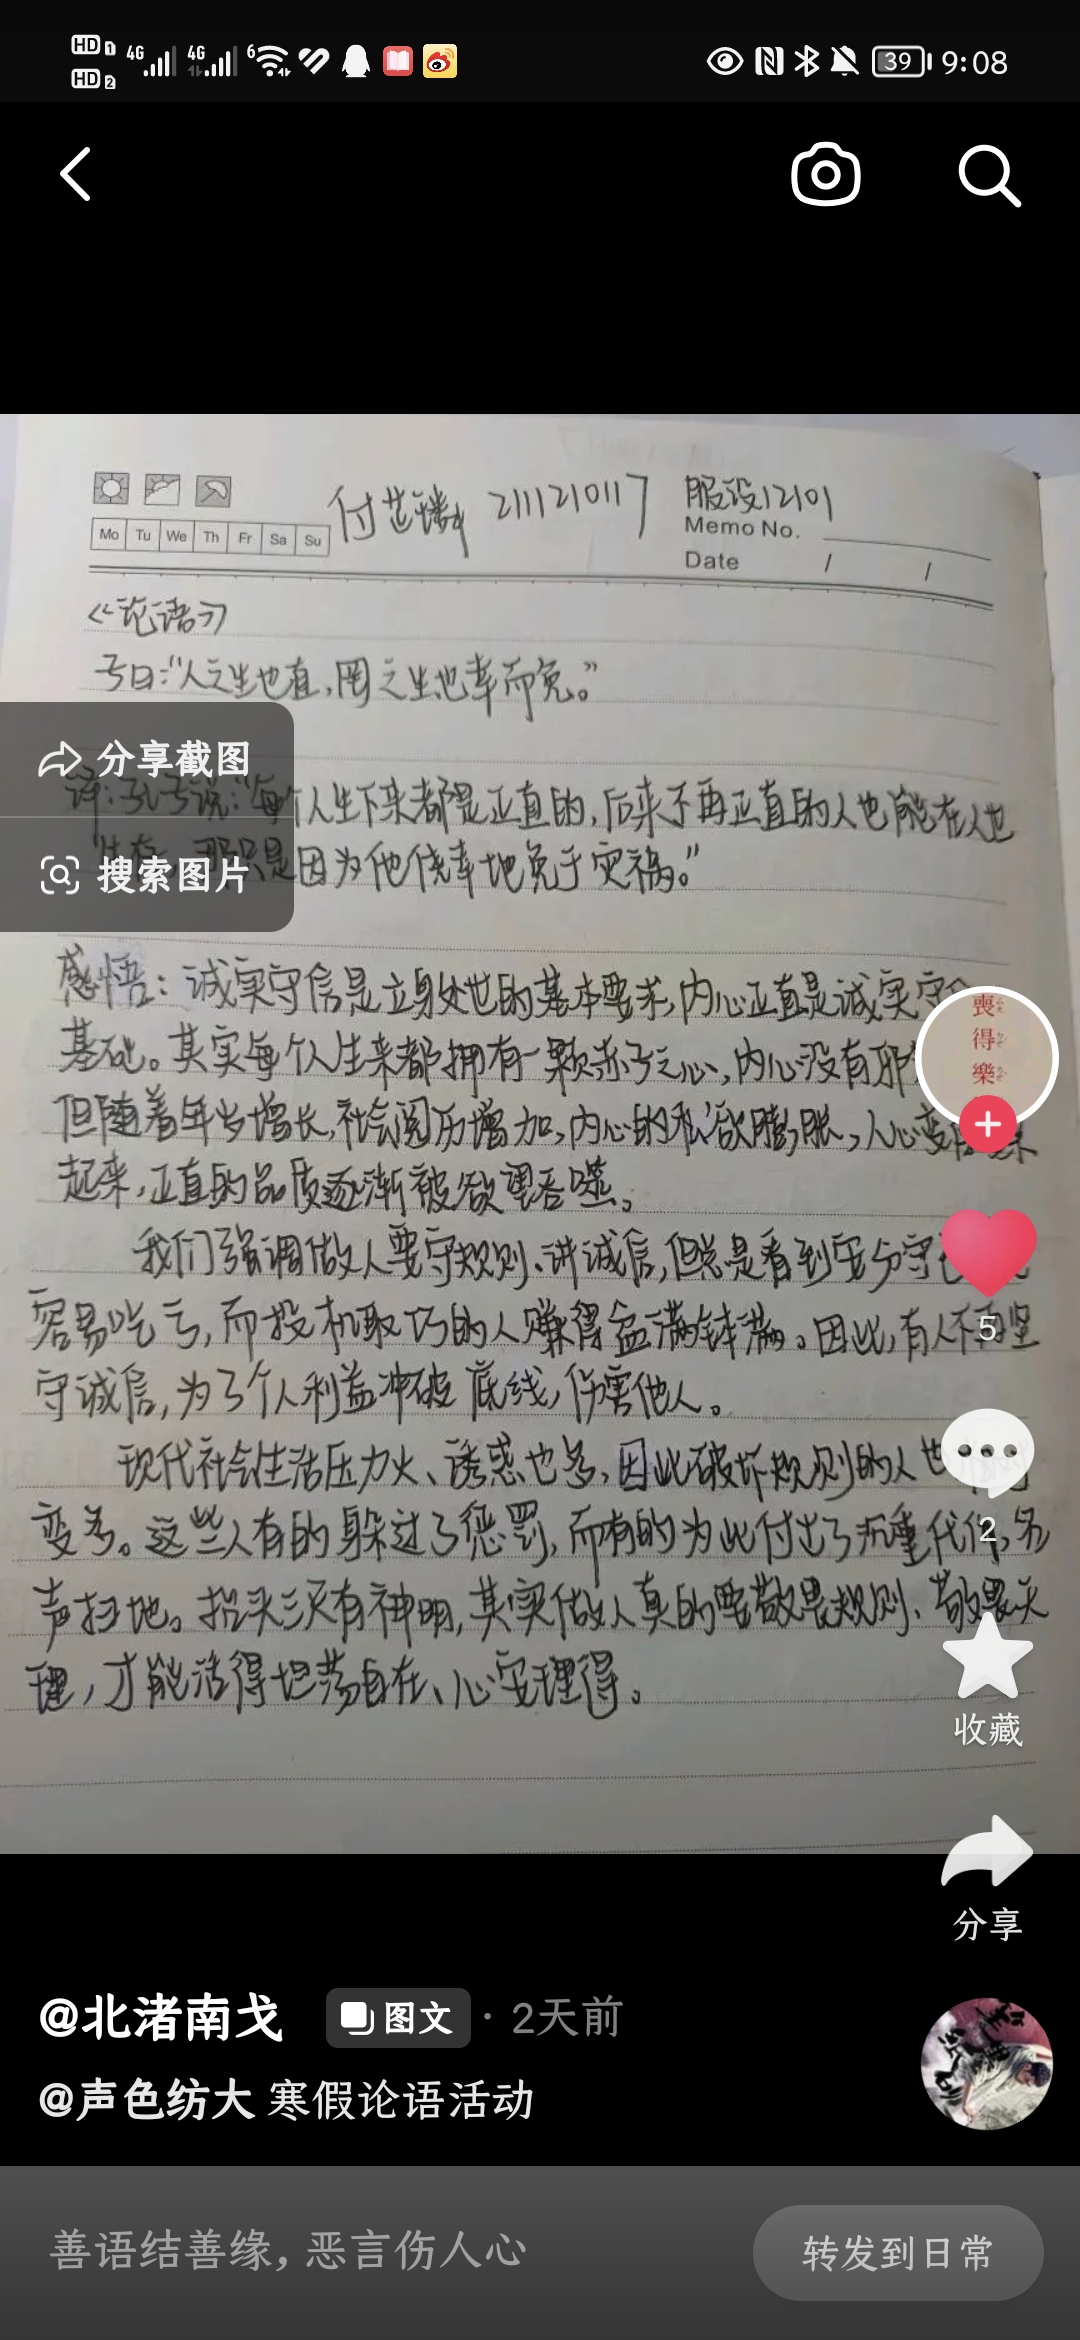 HD 1 4G 4G 6 39 9:08
HD 2
付芷 211121017 服设12101
Mo Tu We Th Fr Sa Su
Memo No.
Date / /
《论语》
子曰:“人之生也直,罔之生也幸而免。”
分享截图
译:孔子说:“每个人生下来都是正直的,后来不再正直的人也能在人世
生存,那只是因为他侥幸地免于灾祸。”
搜索图片
感悟:诚实守信是立身处世的基本要求,内心正直是诚实守
基础。其实每个人生来都拥有一颗赤子之心,内心没有邪
但随着年岁增长,社会阅历增加,内心的私欲膨胀,人心变
起来,正直的品质逐渐被欲望吞噬。
我们强调做人要守规则、讲诚信,但总是看到安分守
容易吃亏,而投机取巧的人赚得盆满钵满。因此,有人不再坚
守诚信,为了个人利益冲破底线,伤害他人。
现代社会生活压力大、诱惑也多,因此破坏规则的人也
变多。这些人有的躲过了惩罚,而有的为此付出了沉重代价,名
声扫地。抬头三尺有神明,其实做人真的要敬畏规则、敬畏天
理,才能活得坦荡自在、心安理得。
喪
得
樂
5
2
收藏
分享
@北渚南戈 图文 · 2天前
@声色纺大 寒假论语活动
善语结善缘,恶言伤人心
转发到日常